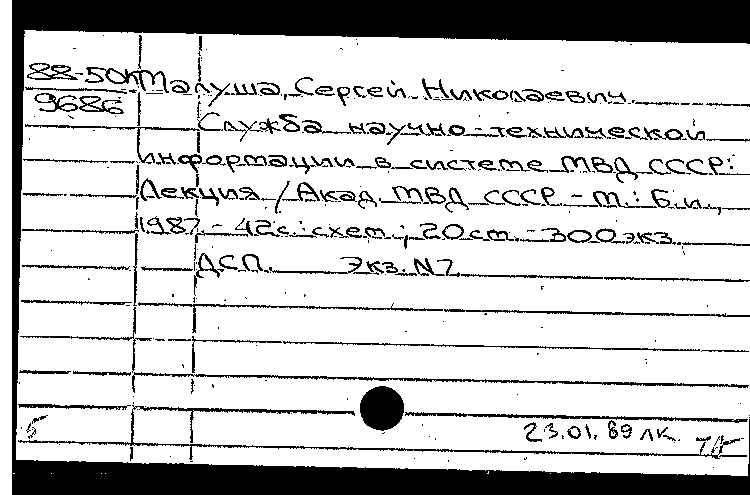 88-50к Малуша, Сергей Николаевич.
9686
Служба научно-технической
информации в системе МВД СССР:
Лекция / Акад. МВД СССР. - М.: Б.и.,
1987. - 42с.: схем.; 20см. - 300экз.
ДСП. Экз. N7
5 23.01.89 ЛК